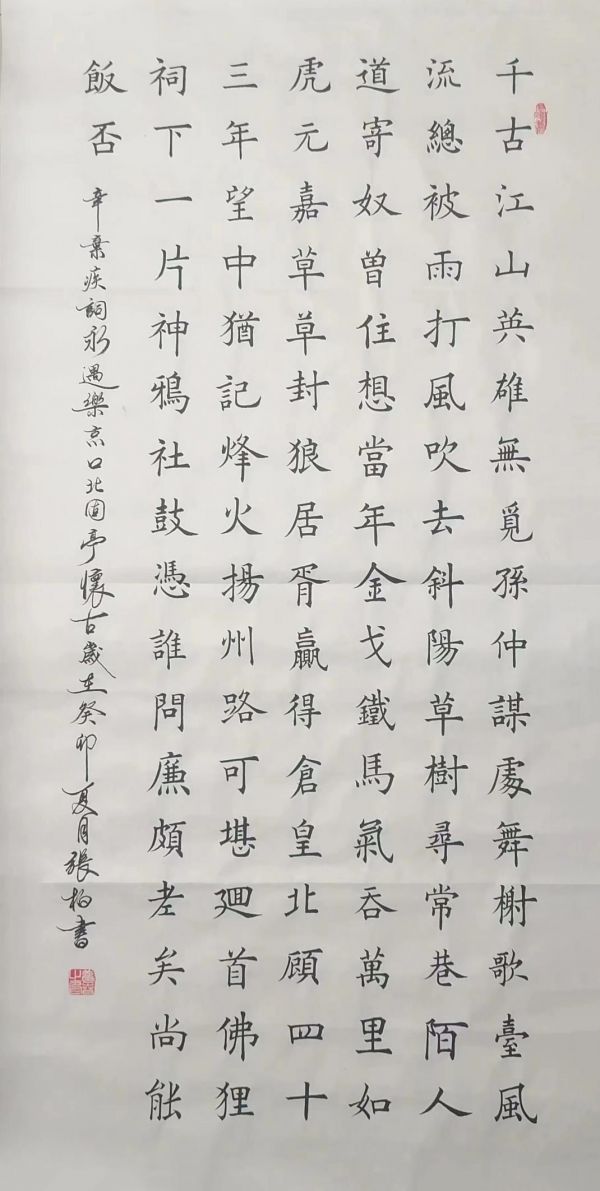 千古江山英雄無覓孫仲謀處舞榭歌臺風
流總被雨打風吹去斜陽草樹尋常巷陌人
道寄奴曾住想當年金戈鐵馬氣吞萬里如
虎元嘉草草封狼居胥贏得倉皇北顧四十
三年望中猶記烽火揚州路可堪廻首佛狸
祠下一片神鴉社鼓憑誰問廉頗老矣尚能
飯否
辛棄疾詞永遇樂京口北固亭懷古歲在癸卯夏月張柏書